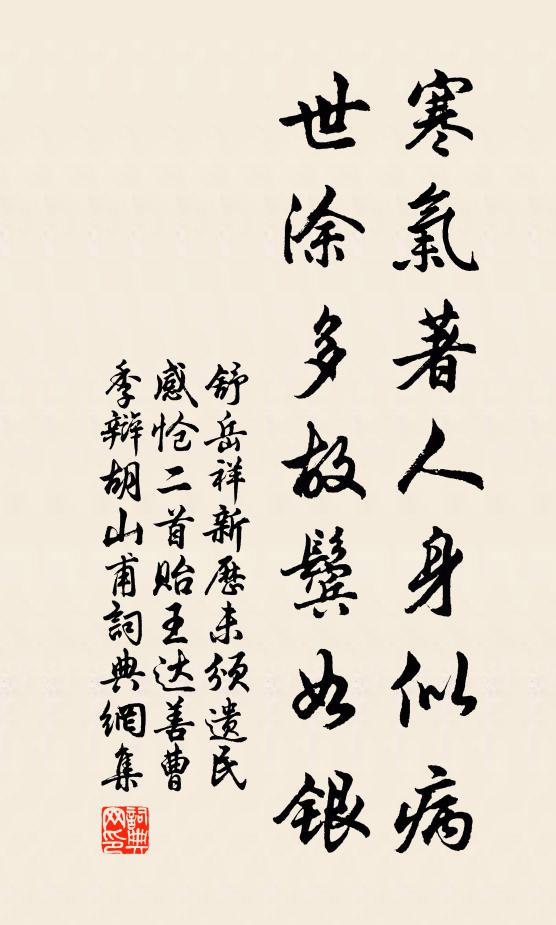 寒氣著人身似病
世涂多故鬢如銀
舒岳祥新歷未頒遺民
感怆二首貽王达善曹
季辯胡山甫詞典網集
詞典网印